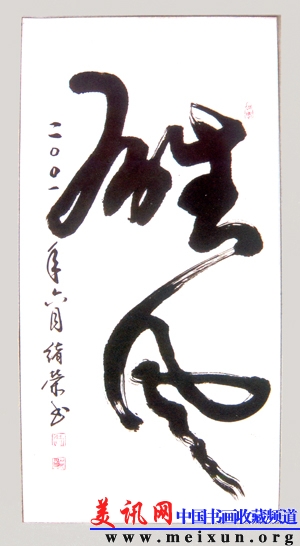 雄风
二〇〇一年六月绪荣书
美讯网 中国书画收藏频道
www.meixun.org